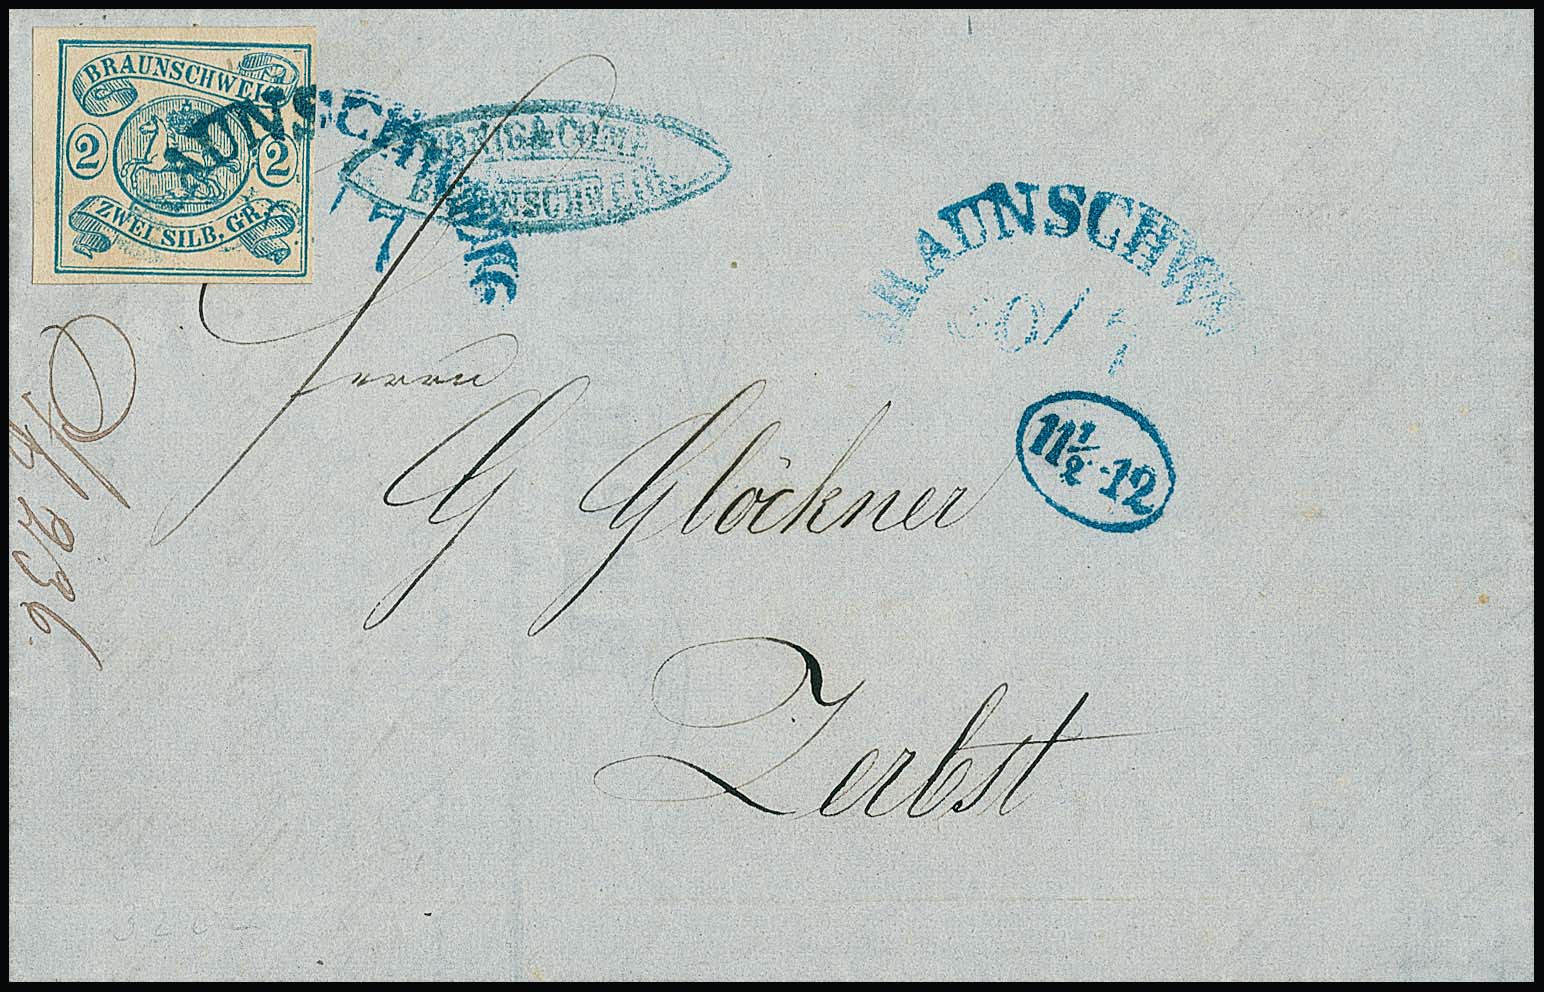 BRAUNSCHWEIG
2 2
ZWEI SILB. GR.
BRAUNSCHWEIG
& COMP
BRAUNSCHWEIG
BRAUNSCHWEIG
11½-12
Herrn
G Glöckner
Zerbst